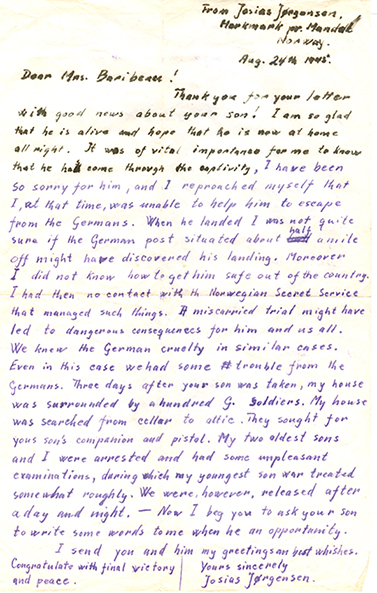 From Josias Jørgensen,
Harkmark pr. Mandal
Norway.
Aug. 24th 1945.
Dear Mrs. Baribeau!
Thank you for your letter
with good news about your son! I am so glad
that he is alive and hope that he is now at home
all right. It was of vital importance for me to know
that he had come through the captivity, I have been
so sorry for him, and I reproached myself that
I, at that time, was unable to help him to escape
from the Germans. When he landed I was not quite
sure if the German post situated about half a mile
off might have discovered his landing. Moreover
I did not know how to get him safe out of the country.
I had then no contact with th Norwegian Secret Service
that managed such things. A miscarried trial might have
led to dangerous consequences for him and us all.
We knew the German cruelty in similar cases.
Even in this case we had some trouble from the
Germans. Three days after your son was taken, my house
was surrounded by a hundred G. soldiers. My house
was searched from cellar to attic. They sought for
yous son's companion and pistol. My two oldest sons
and I were arrested and had some unpleasant
examinations, during which my youngest son war treated
somewhat roughly. We were, however, released after
a day and night. — Now I beg you to ask your son
to write some words to me when he an opportunity.
I send you and him my greetings an best whishes.
Congratulate with final victory
and peace.
Yours sincerely
Josias Jørgensen.